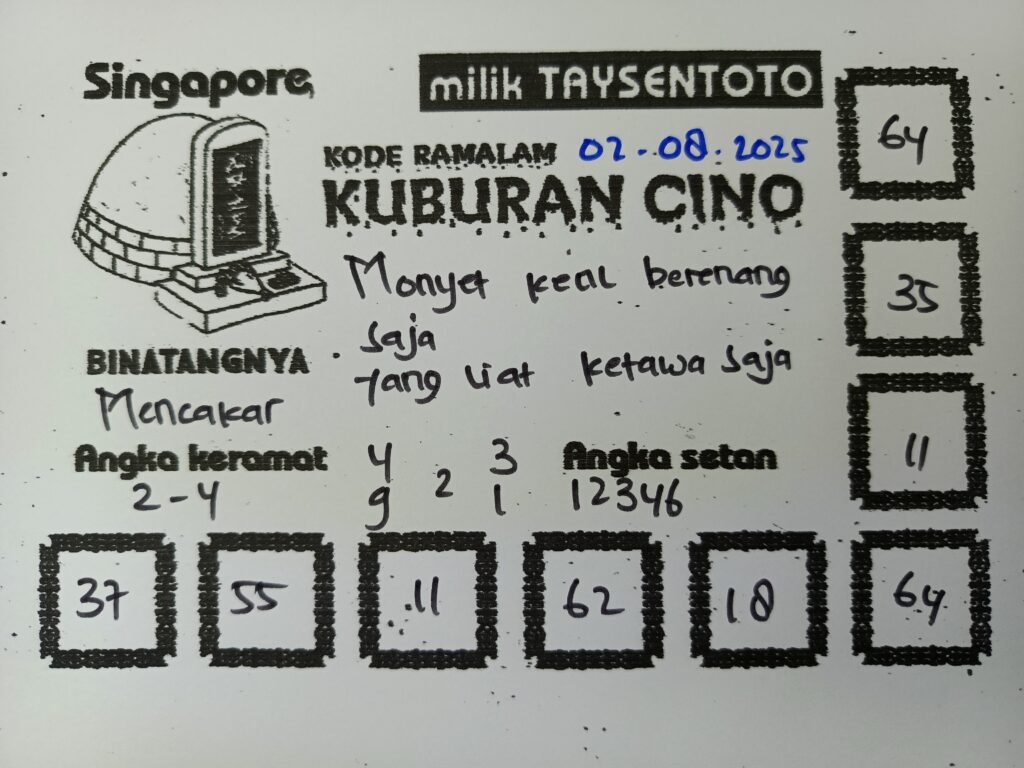 Singapore
milik TAYSENTOTO
KODE RAMALAM 02-08.2025
KUBURAN CINO
Monyet kecil berenang
saja
yang liat ketawa saja
BINATANGNYA
Mencakar
Angka keramat
2-4
4 3
2
9 1
Angka setan
12346
64
35
11
37 55 11 62 18 64